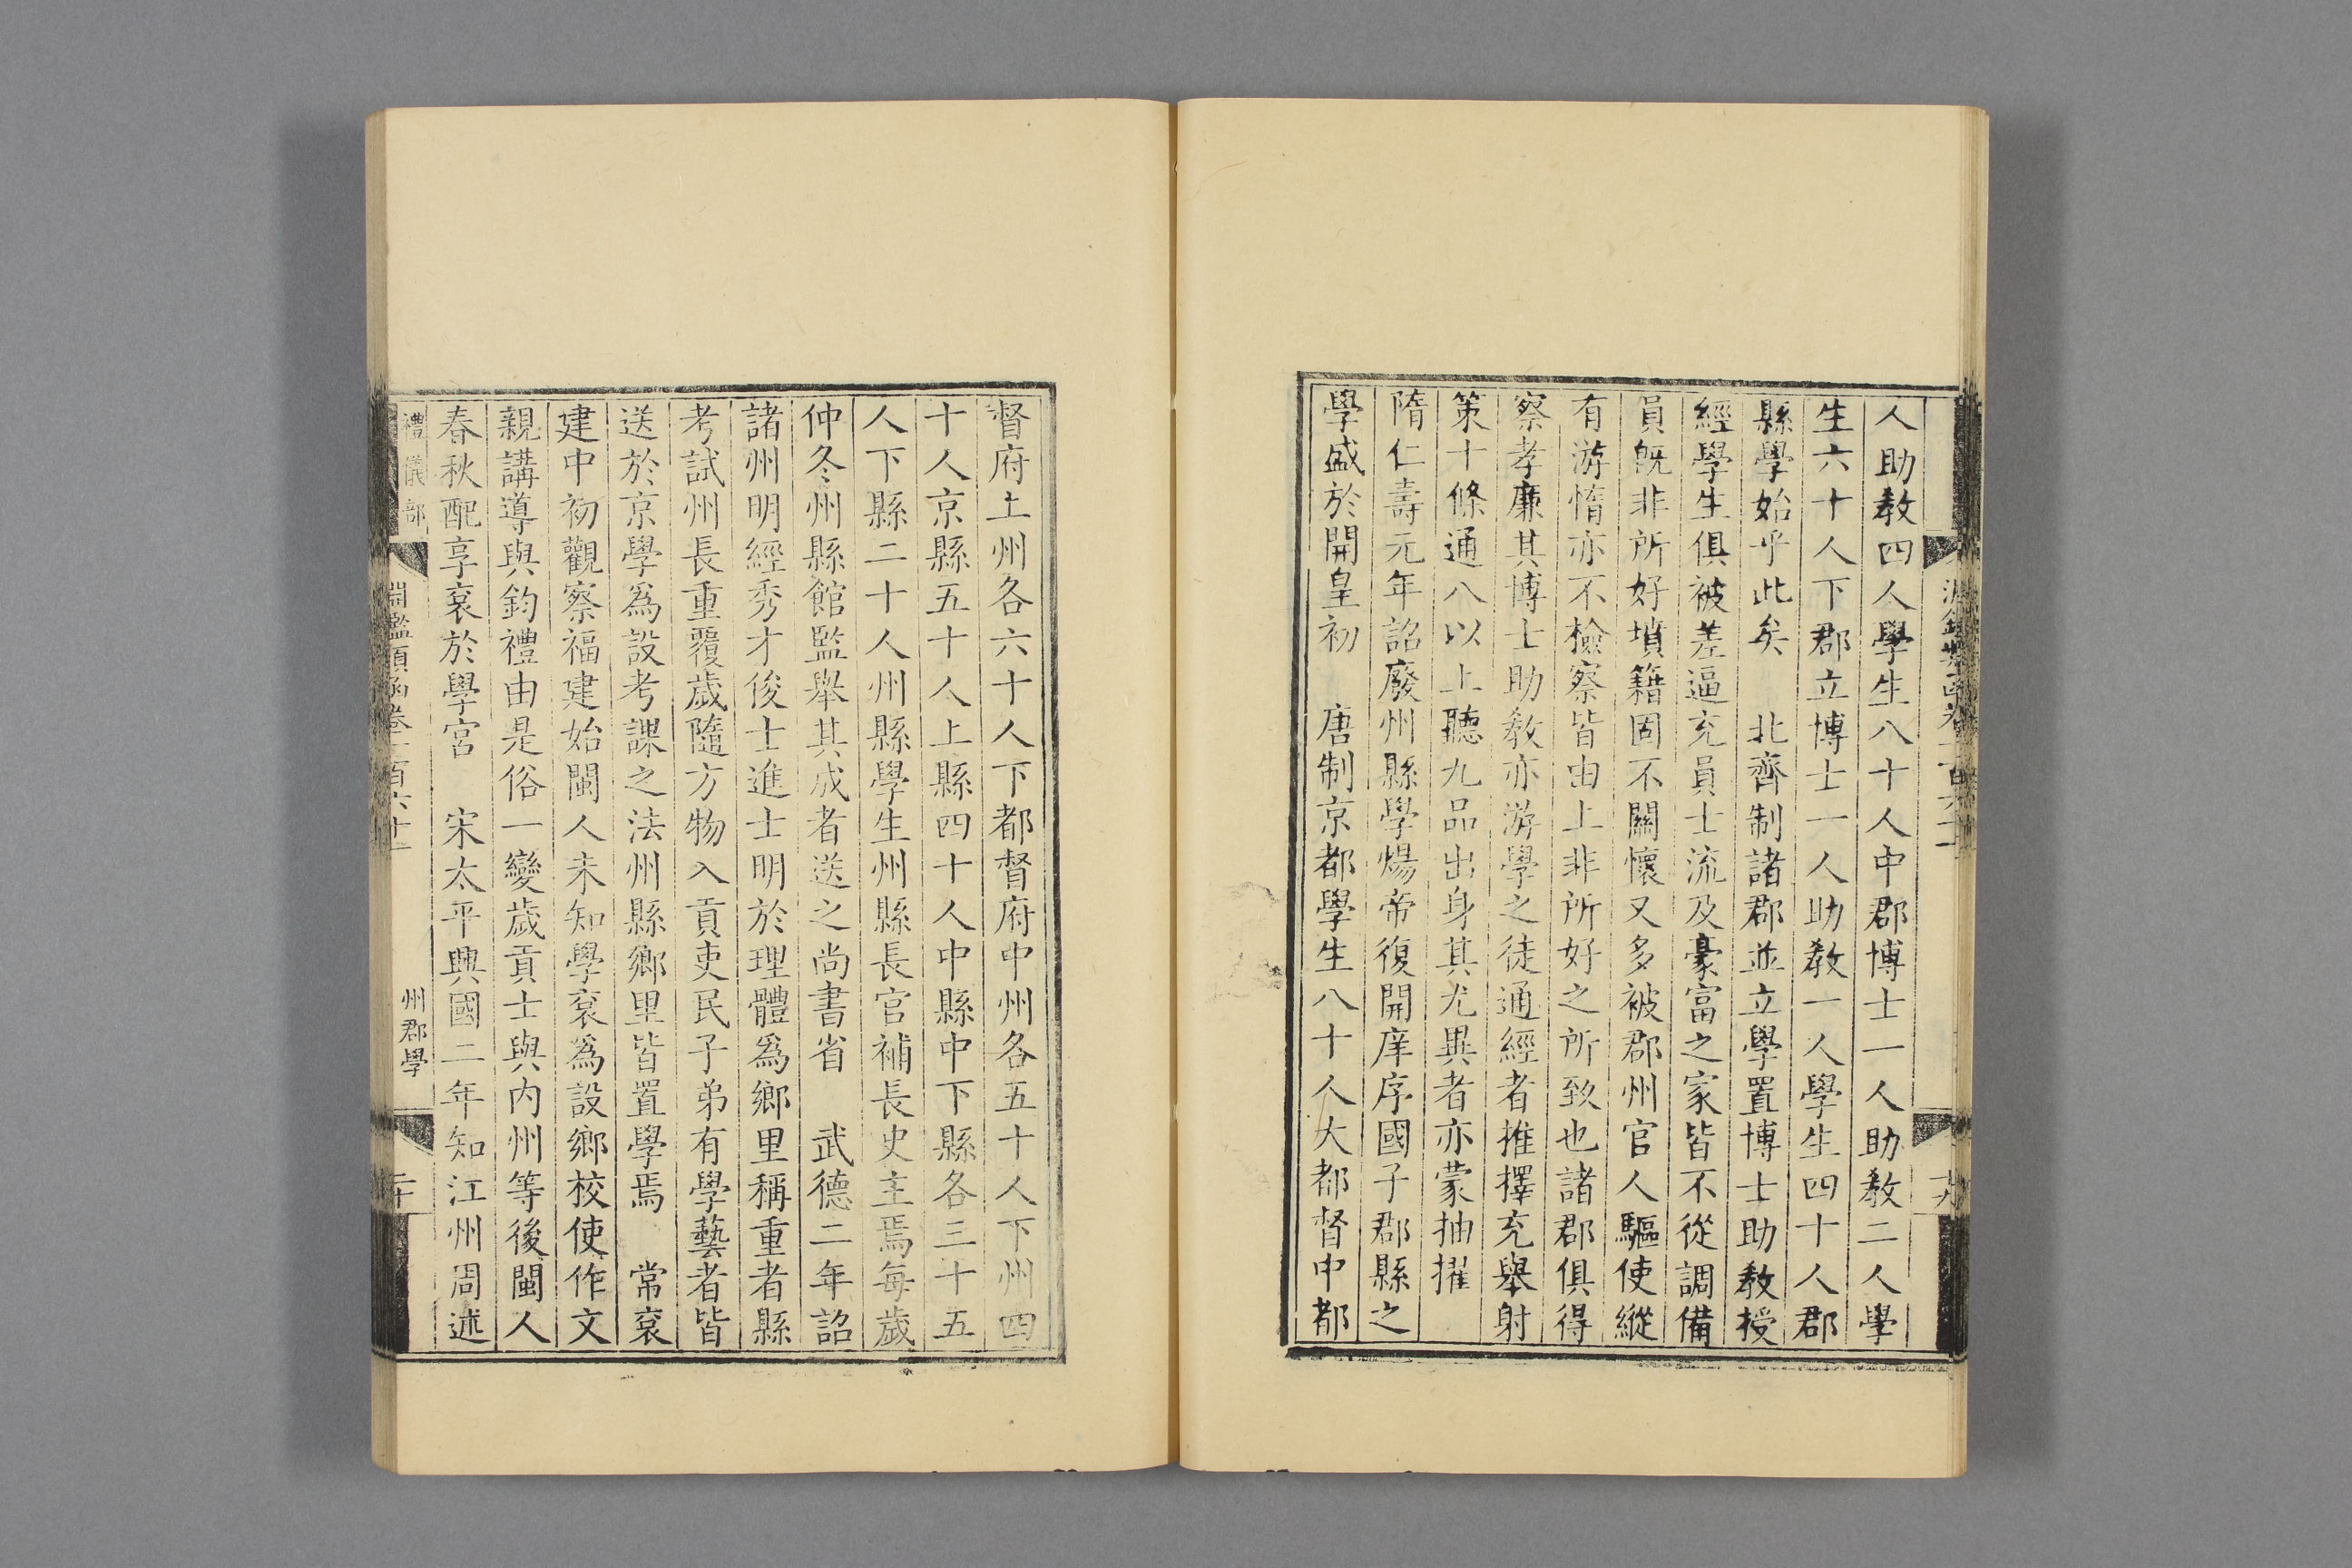 人助教四人學生八十人中郡博士一人助教二人學
生六十人下郡立博士一人助教一人學生四十人郡
縣學始乎此矣　北齊制諸郡並立學置博士助教授
經學生俱被差逼充員士流及豪富之家皆不從調備
員旣非所好墳籍固不關懷又多被郡州官人驅使縱
有游惰亦不檢察皆由上非所好之所致也諸郡俱得
察孝廉其博士助教亦游學之徒通經者推擇充舉射
策十條通八以上聽九品出身其尤異者亦蒙抽擢
隋仁壽元年詔廢州縣學煬帝復開庠序國子郡縣之
學盛於開皇初　唐制京都學生八十人大都督中都
督府上州各六十人下都督府中州各五十人下州四
十人京縣五十人上縣四十人中縣中下縣各三十五
人下縣二十人州縣學生州縣長官補長史主焉每歲
仲冬州縣館監舉其成者送之尚書省　武德二年詔
諸州明經秀才俊士進士明於理體爲鄉里稱重者縣
考試州長重覆歲隨方物入貢吏民子弟有學藝者皆
送於京學爲設考課之法州縣鄉里皆置學焉　常袞
建中初觀察福建始閩人未知學袞爲設鄉校使作文
親講導與鈞禮由是俗一變歲貢士與內州等後閩人
春秋配享袞於學宮　宋太平興國二年知江州周述
禮儀部　淵鑑類函卷一百六十一　州郡學　二十